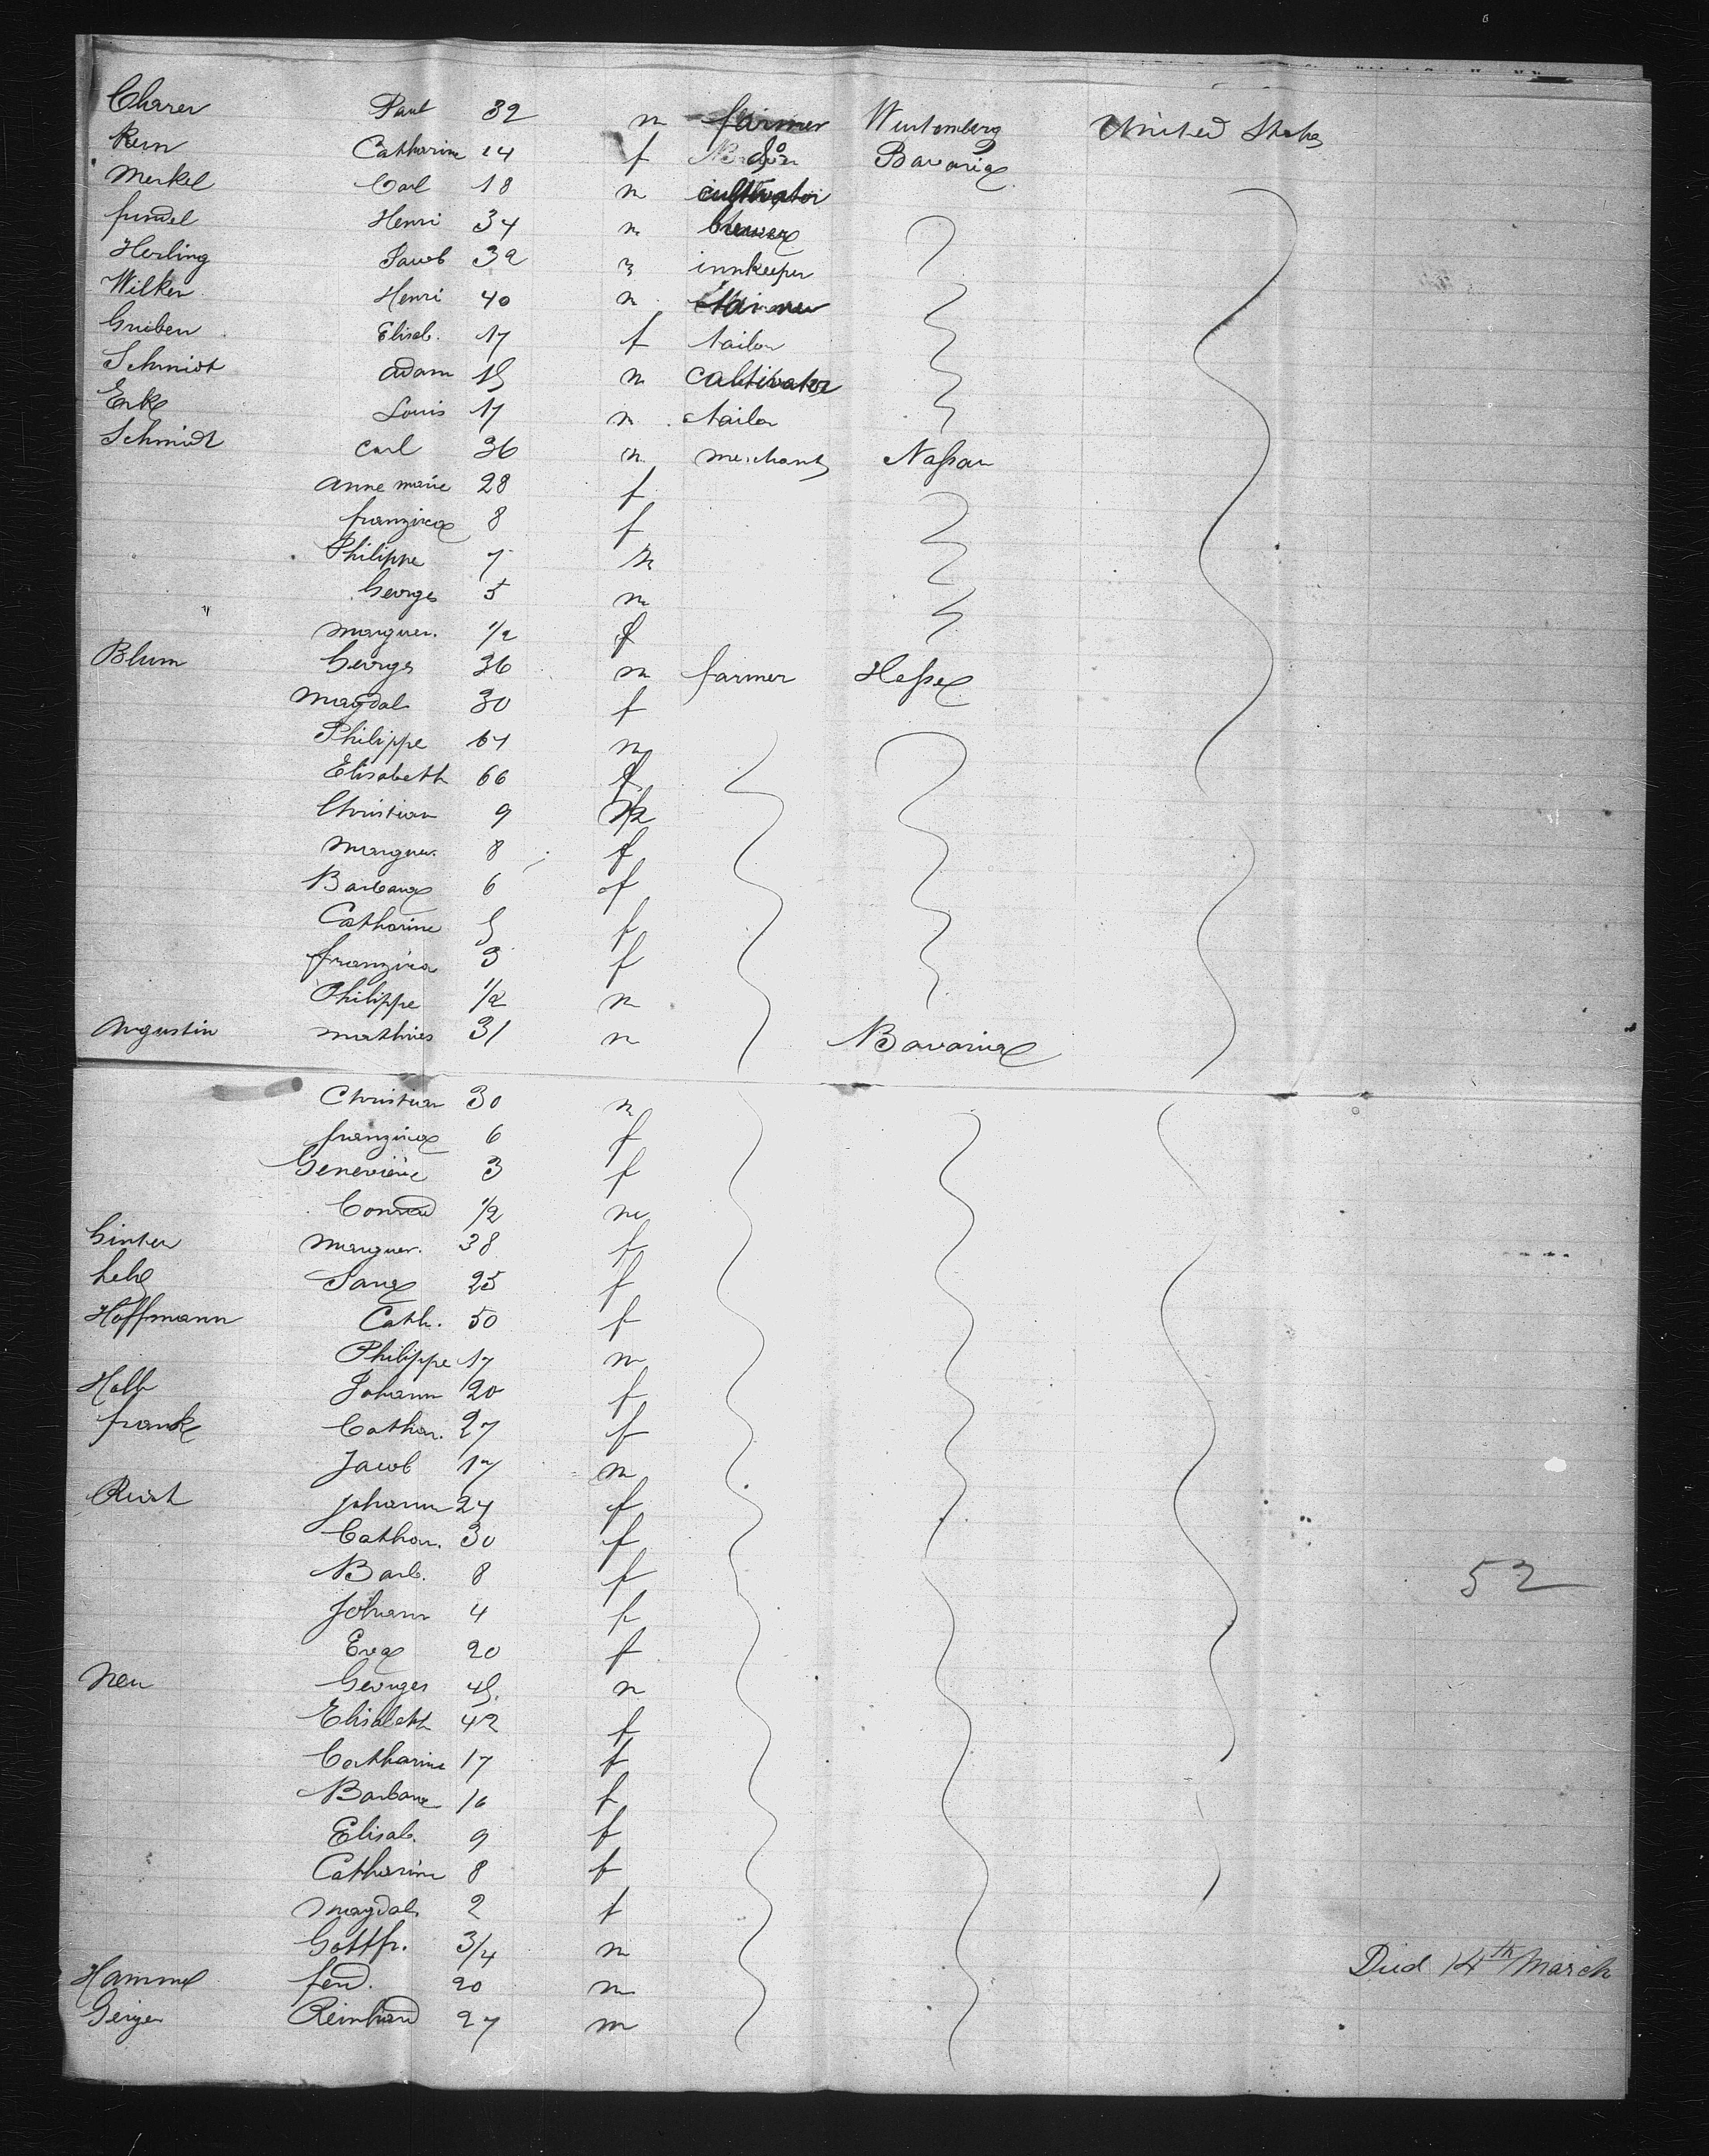 Charer Paul 32 m farmer Wurtemberg United States
Kern Catharine 14 f do Bavaria
Merkel Carl 18 m cultivator
fundel Henri 34 m brewer
Herling Jacob 32 m innkeeper
Wilker Henri 40 m
Gruber Elisab. 17 f tailor
Schmidt Adam 15 m caltivator
Erke Louis 17 m tailor
Schmidt Carl 36 m merchant Nassau
Anne marie 28 f
franzisca 8 f
Philippe 7 m
Georges 5 m
Marguer. 1/2 f
Blum Georges 36 m farmer Hesse
Magdal. 30 f
Philippe 64 m
Elisabeth 66 f
Christian 9 m
Marguer. 8 f
Barbara 6 f
Catharine 5 f
franzisca 3 f
Philippe 1/2 m
Augustin Mathies 31 m Bavaria
Christian 30 m
franzisca 6 f
Geneviève 3 f
Conrad 1/2 m
Ginter Marguer. 38 f
25 f
Hoffmann Cath. 50 f
Philippe 17 m
Holb Johann 20 f
frank Cathar. 27 f
Jacob 17 m
Johann 24 f
Cathar. 30 f
Barb. 8 f 52
Johann 4 f
Eva 20 f
Neu Georges 45 m
Elisabeth 42 f
Catharine 17 f
Barbara 16 f
Elisab. 9 f
Catharine 8 f
Magdal. 2 f
Gottfr. 3/4 m Died 14th March
Hammel ferd. 20 m
Geiger Reinhard 27 m